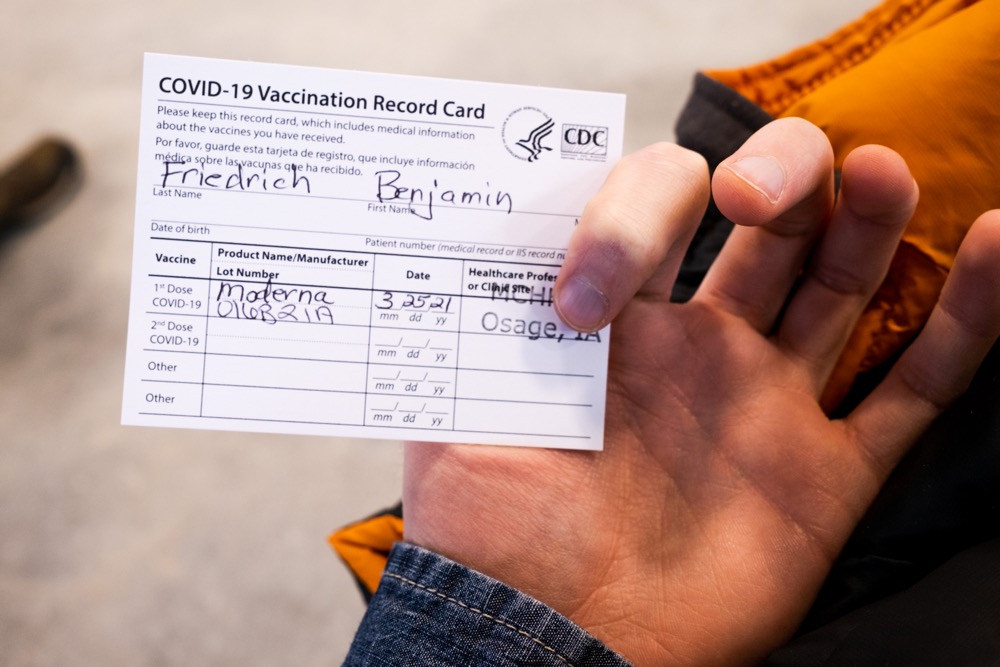 COVID-19 Vaccination Record Card
Please keep this record card, which includes medical information
about the vaccines you have received.
Por favor, guarde esta tarjeta de registro, que incluye información
médica sobre las vacunas que ha recibido.
CDC
Friedrich Benjamin
Last Name First Name
Date of birth Patient number (medical record or IIS record
Vaccine
Product Name/Manufacturer
Lot Number
Date
Healthcare
or Clinic Site
1st Dose
COVID-19
Moderna
016B21A
3 25 21
mm dd yy
Osage, IA
2nd Dose
COVID-19
mm dd yy
Other
mm dd yy
Other
mm dd yy